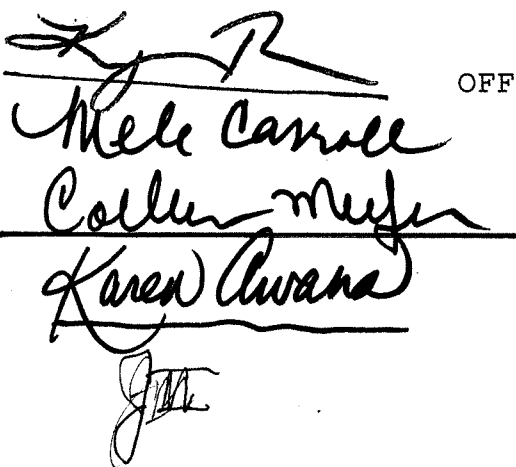 OFF
Mele Carroll
Colleen Meyer
Karen Awana